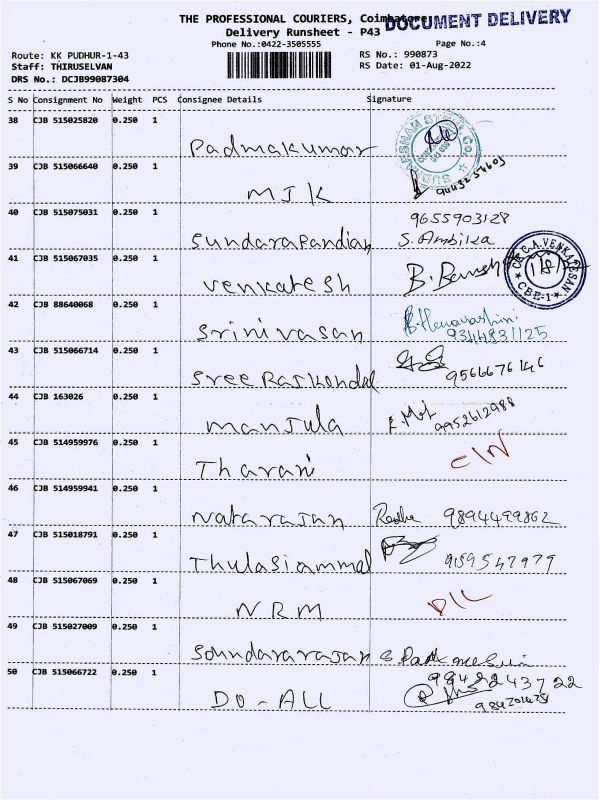 THE PROFESSIONAL COURIERS, Coimbatore.
DOCUMENT DELIVERY
Delivery Runsheet - P43
Phone No.:0422-3505555
Page No.:4
Route: KK PUDHUR-1-43
RS No.: 990873
Staff: THIRUSELVAN
RS Date: 01-Aug-2022
DRS No.: DCJB99087304
S No Consignment No Weight PCS Consignee Details Signature
38 CJB 515025820 0.250 1
Padmakumar
39 CJB 515066640 0.250 1
MJK
40 CJB 515075031 0.250 1 9655903128
Sundarapandian S. Ambika
41 CJB 515067035 0.250 1
Venkatesh B.
C.A. VENKATESAN
CBE-1
42 CJB 88640068 0.250 1
Srinivasan 9344831125
43 CJB 515066714 0.250 1
Sree Raskondal 9566676146
44 CJB 163026 0.250 1
Manjula 9952612988
45 CJB 514959976 0.250 1
Tharani C/N
46 CJB 514959941 0.250 1
Natarajan Radha 9894499862
47 CJB 515018791 0.250 1
Thulasiammal 9159547979
48 CJB 515067069 0.250 1
NRM D/L
49 CJB 515027009 0.250 1
Soundararajan S.
50 CJB 515066722 0.250 1
DO-ALL